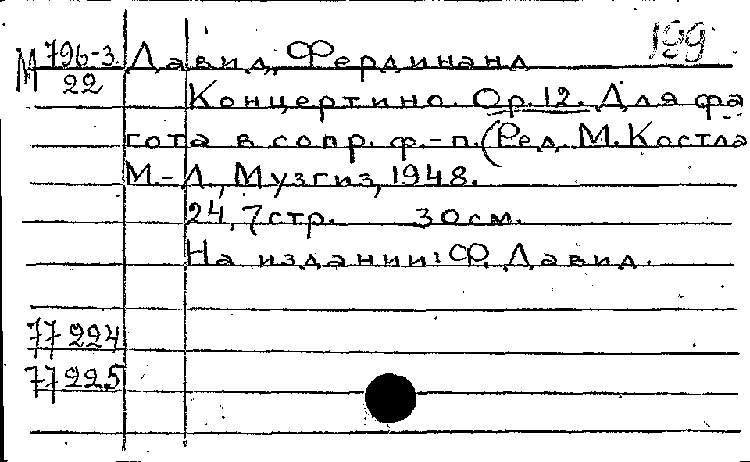 199
М 796-3
22
Давид, Фердинанд
Концертино. Op. 12. Для фа
гота в сопр. ф.-п. (Ред. М. Костла
М.-Л., Музгиз, 1948.
24, 7 стр. 30 см.
На издании: Ф. Давид.
77224
77225